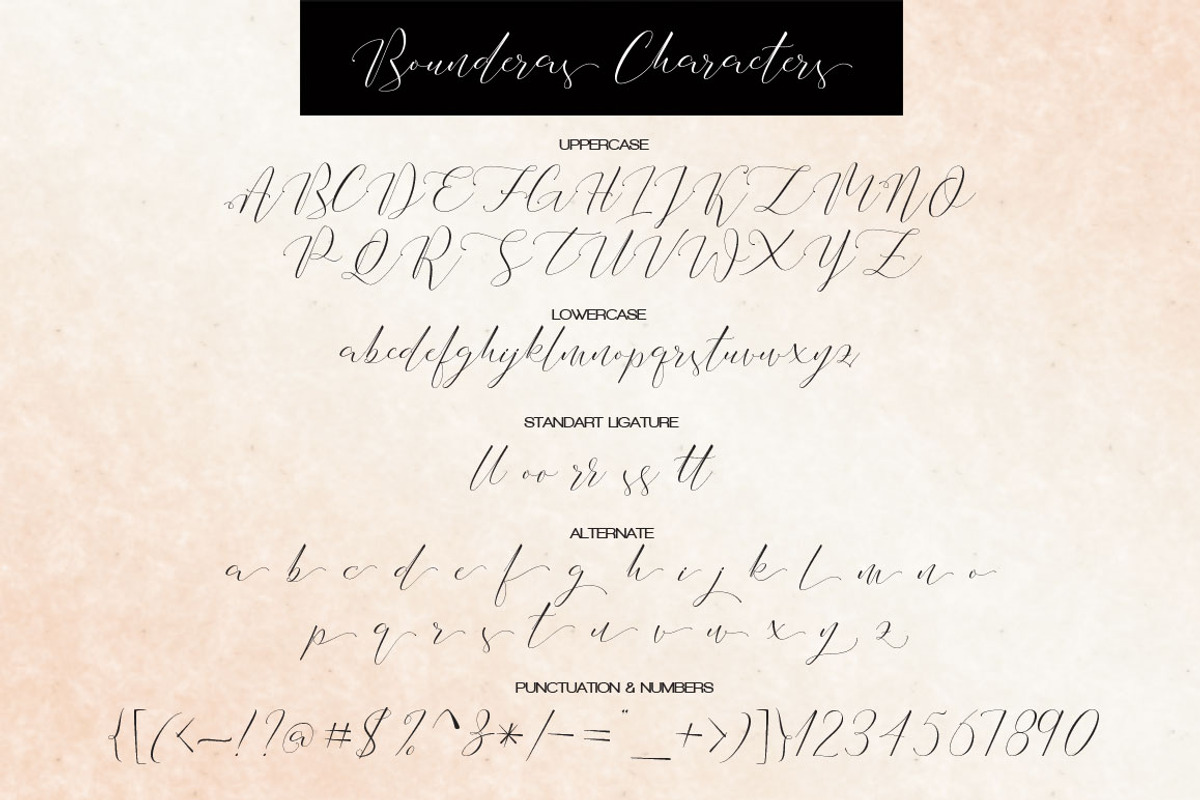 Bounderas Characters
UPPERCASE
A B C D E F G H I J K L M N O
P Q R S T U V W X Y Z
LOWERCASE
abcdefghijklmnopqrstuvwxyz
STANDART LIGATURE
ll oo rr ss tt
ALTERNATE
a b c d e f g h i j k l m n o
p q r s t u v w x y z
PUNCTUATION & NUMBERS
{[(<~!?@#$%^&*/-="_+>)]}1234567890